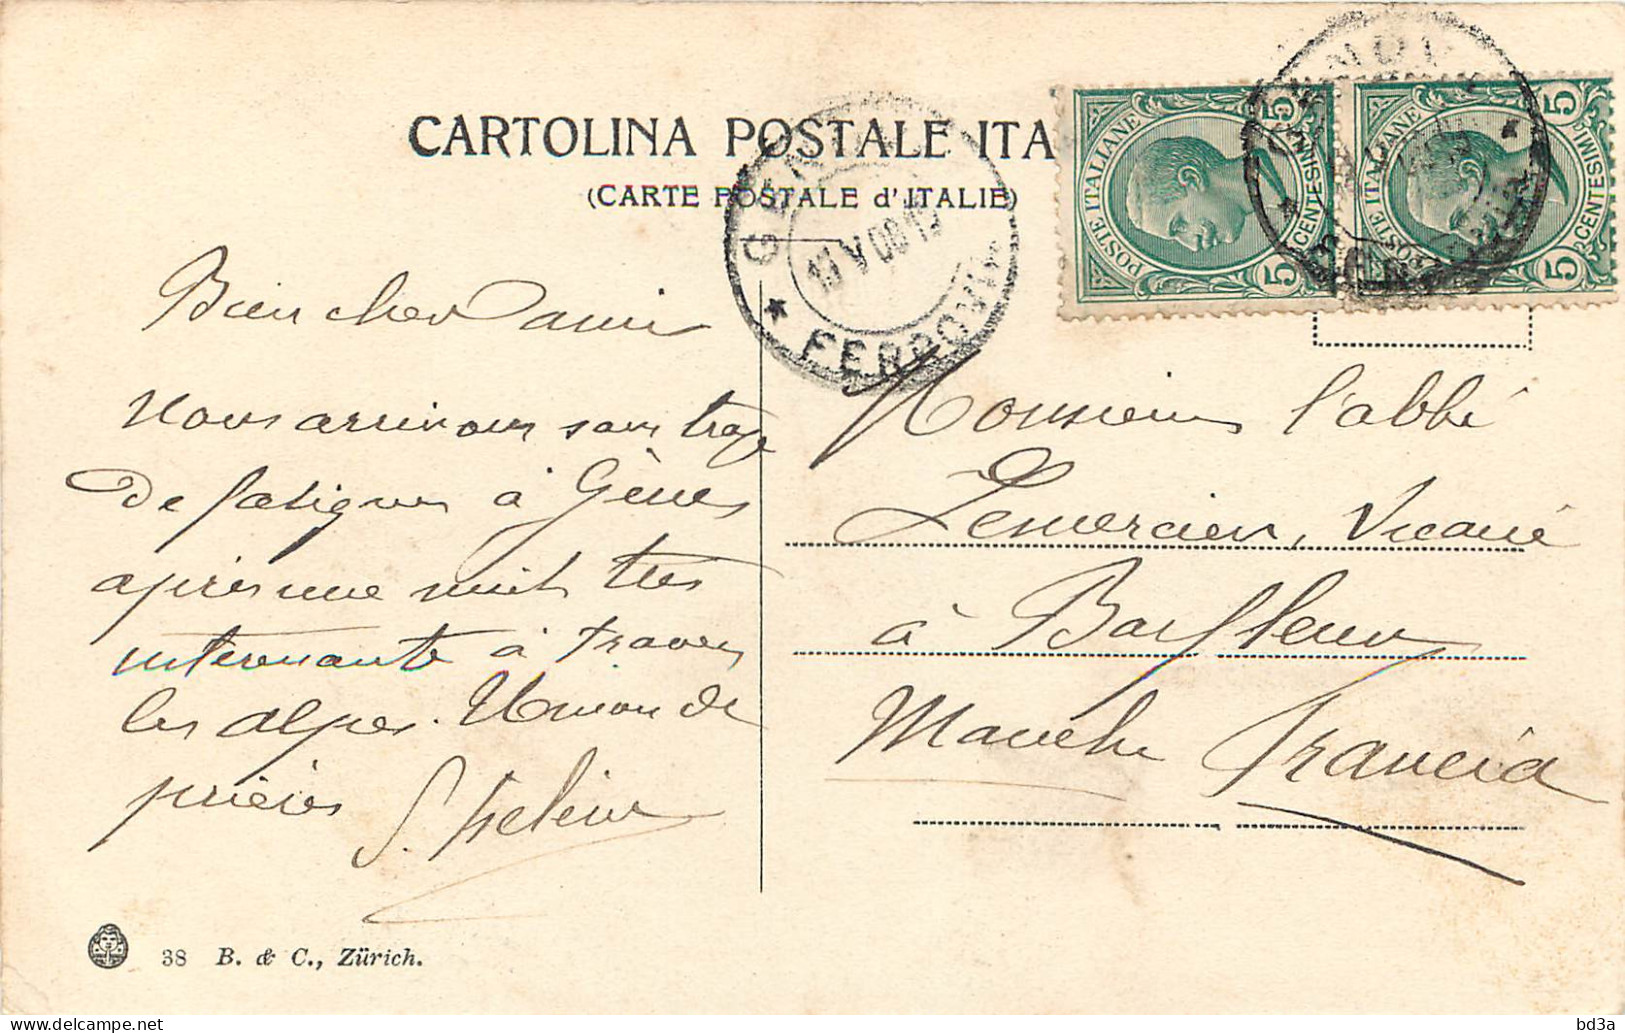 CARTOLINA POSTALE ITA
(CARTE POSTALE d'ITALIE)
POSTE ITALIANE
5 CENTESIMI 5
POSTE ITALIANE
5 CENTESIMI 5
FERROVIA
V 08
Bien cher ami
Nous arrivons sans trop
de fatigues à Gênes
après une nuit très
intéressante à travers
les alpes. Union de
prières
Monsieur l'abbé
Lemercier, Vicaire
à Barfleur
Manche Francia
38 B. & C., Zürich.
bd3a